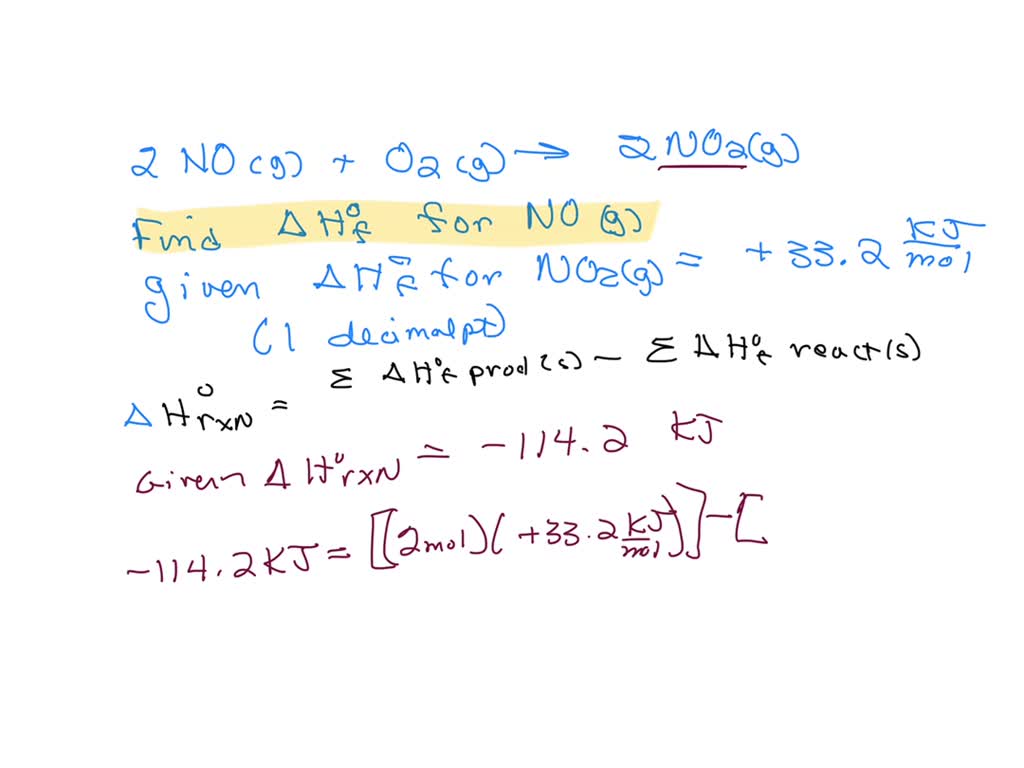 2 NO(g) + O2(g) → 2 NO2(g)
Find ΔH°f for NO(g)
given ΔH°f for NO2(g) = +33.2 KJ/mol
(1 decimal pt)
ΔH°rxN = Σ ΔH°f prod(s) – Σ ΔH°f react(s)
Given ΔH°rxN = -114.2 KJ
-114.2KJ = [(2mol)(+33.2 KJ/mol)]-[